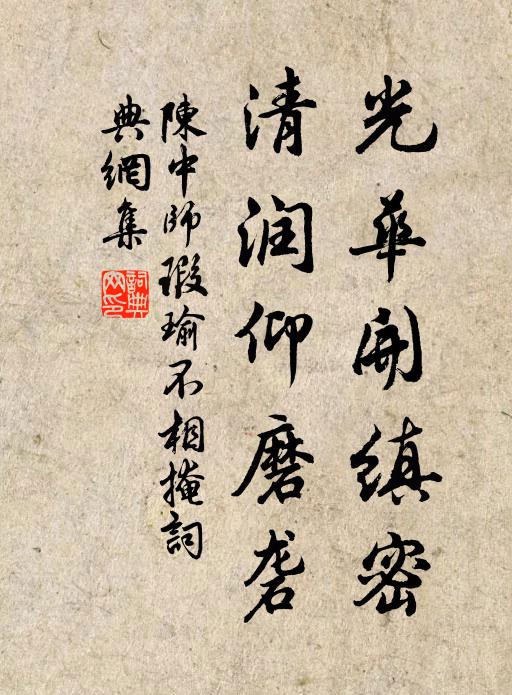 光華開縝密
清润仰磨砻
陳中師瑕瑜不相掩詞
典網集
詞典網印